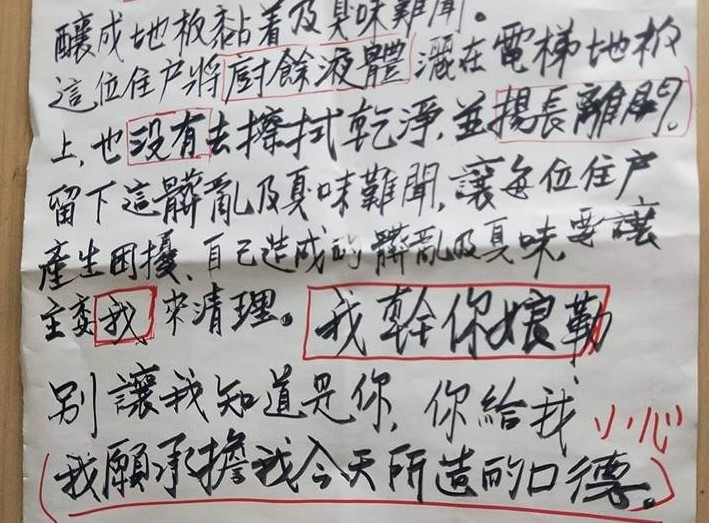 釀成地板黏着及臭味難聞。
這位住戶將廚餘液體灑在電梯地板
上,也没有去擦拭乾淨,並揚長離開?
留下這髒亂及臭味難聞,讓每位住户
產生困擾、自己造成的髒亂及臭味,要讓
主委我來清理。我幹你娘勒
別讓我知道是你,你給我小心
(我願承擔我今天所造的口德。)